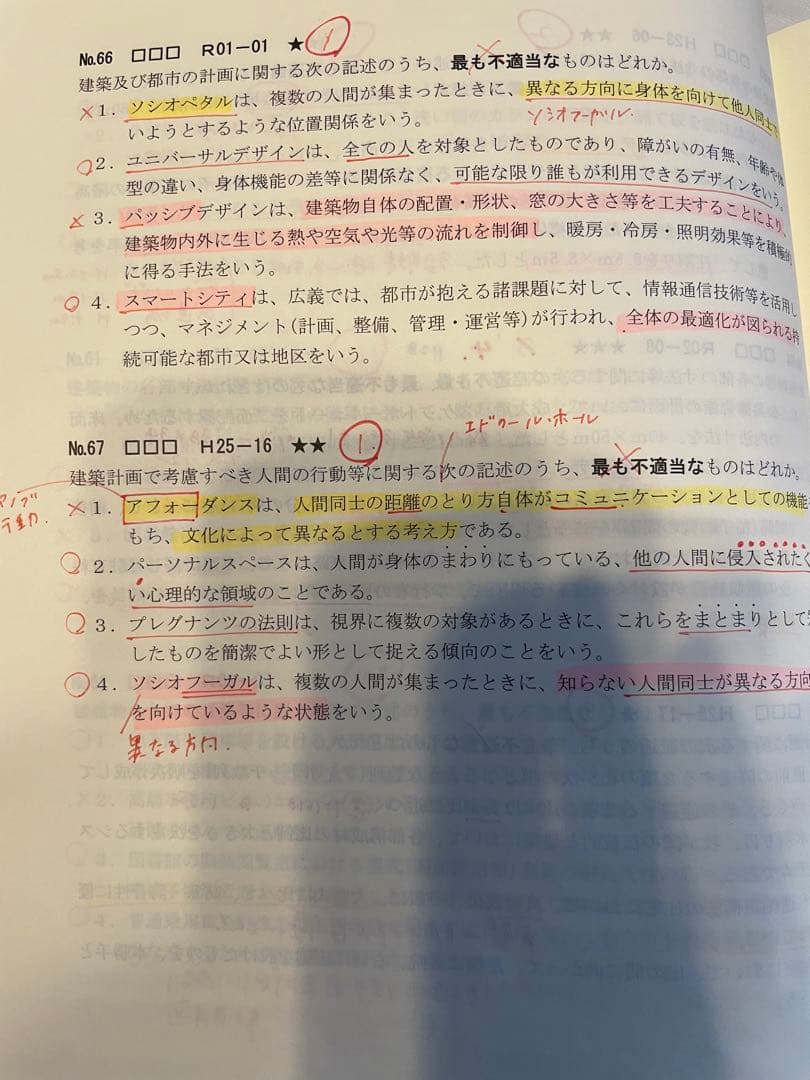 No.66 □□□ R01-01 ★ ①
建築及び都市の計画に関する次の記述のうち、最も不適当なものはどれか。
×1. ソシオペタルは、複数の人間が集まったときに、異なる方向に身体を向けて他人同士で
ソシオフーガル
いようとするような位置関係をいう。
○2. ユニバーサルデザインは、全ての人を対象としたものであり、障がいの有無、年齢や体
型の違い、身体機能の差等に関係なく、可能な限り誰もが利用できるデザインをいう。
×3. パッシブデザインは、建築物自体の配置・形状、窓の大きさ等を工夫することにより、
建築物内外に生じる熱や空気や光等の流れを制御し、暖房・冷房・照明効果等を積極的
に得る手法をいう。
○4. スマートシティは、広義では、都市が抱える諸課題に対して、情報通信技術等を活用し
つつ、マネジメント(計画、整備、管理・運営等)が行われ、全体の最適化が図られる持
続可能な都市又は地区をいう。
エドワール・ホール
No.67 □□□ H25-16 ★★ ①
建築計画で考慮すべき人間の行動等に関する次の記述のうち、最も不適当なものはどれか。
×1. アフォーダンスは、人間同士の距離のとり方自体がコミュニケーションとしての機能を
もち、文化によって異なるとする考え方である。
○2. パーソナルスペースは、人間が身体のまわりにもっている、他の人間に侵入されたく
い心理的な領域のことである。
○3. プレグナンツの法則は、視界に複数の対象があるときに、これらをまとまりとして
したものを簡潔でよい形として捉える傾向のことをいう。
○4. ソシオフーガルは、複数の人間が集まったときに、知らない人間同士が異なる方向
を向けているような状態をいう。
異なる方向.